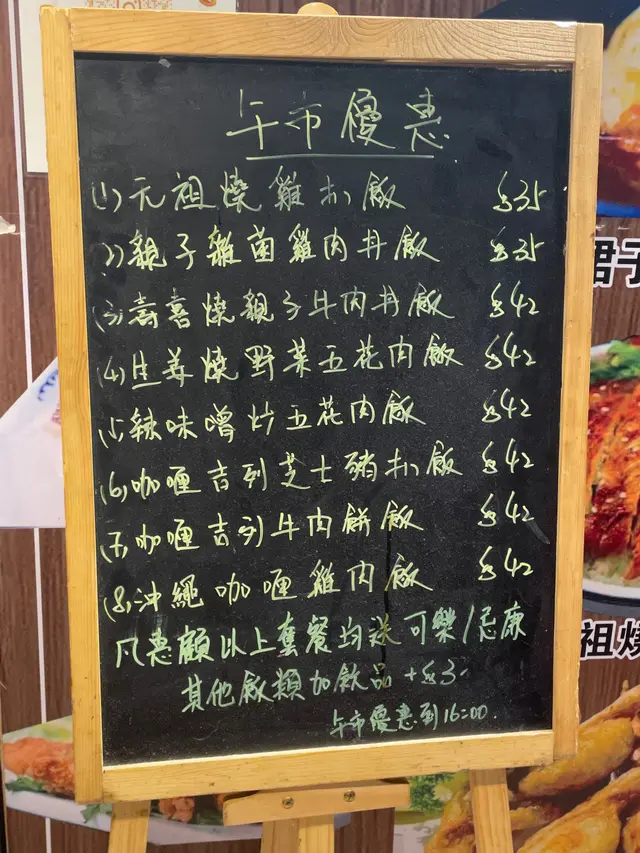 午市優惠
(1)元祖燒雞扒飯 $35
(2)親子雜菌雞肉丼飯 $35
(3)壽喜燒親子牛肉丼飯 $42
(4)生姜燒野菜五花肉飯 $42
(5)辣味噌炒五花肉飯 $42
(6)咖喱吉列芝士豬扒飯 $42
(7)咖喱吉列牛肉餅飯 $42
(8)沖繩咖喱雞肉飯 $42
凡惠顧以上套餐均送可樂/忌廉
其他飯類加飲品+$3
午市優惠到16:00
君子
祖燒